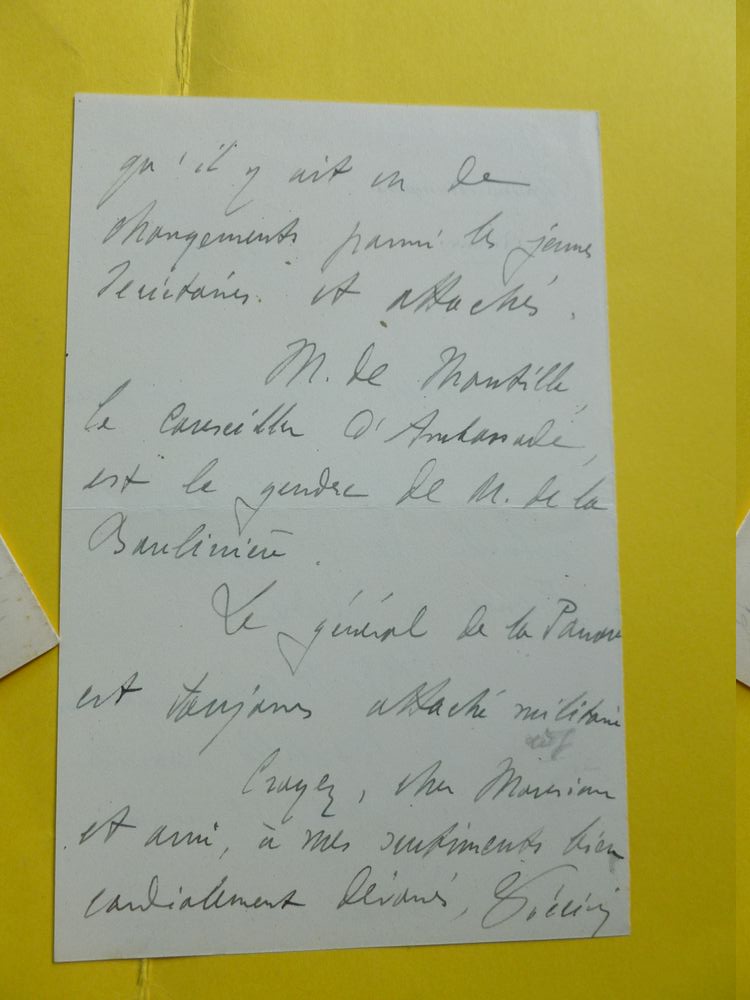 qu'il y ait eu de
changements parmi les jeunes
secrétaires et attachés.
M. de Montille,
le conseiller d'Ambassade,
est le gendre de M. de la
Boulinière.
Le général de la Panouse
est toujours attaché militaire
Croyez, cher Monsieur
et ami, à mes sentiments bien
cordialement dévoués,